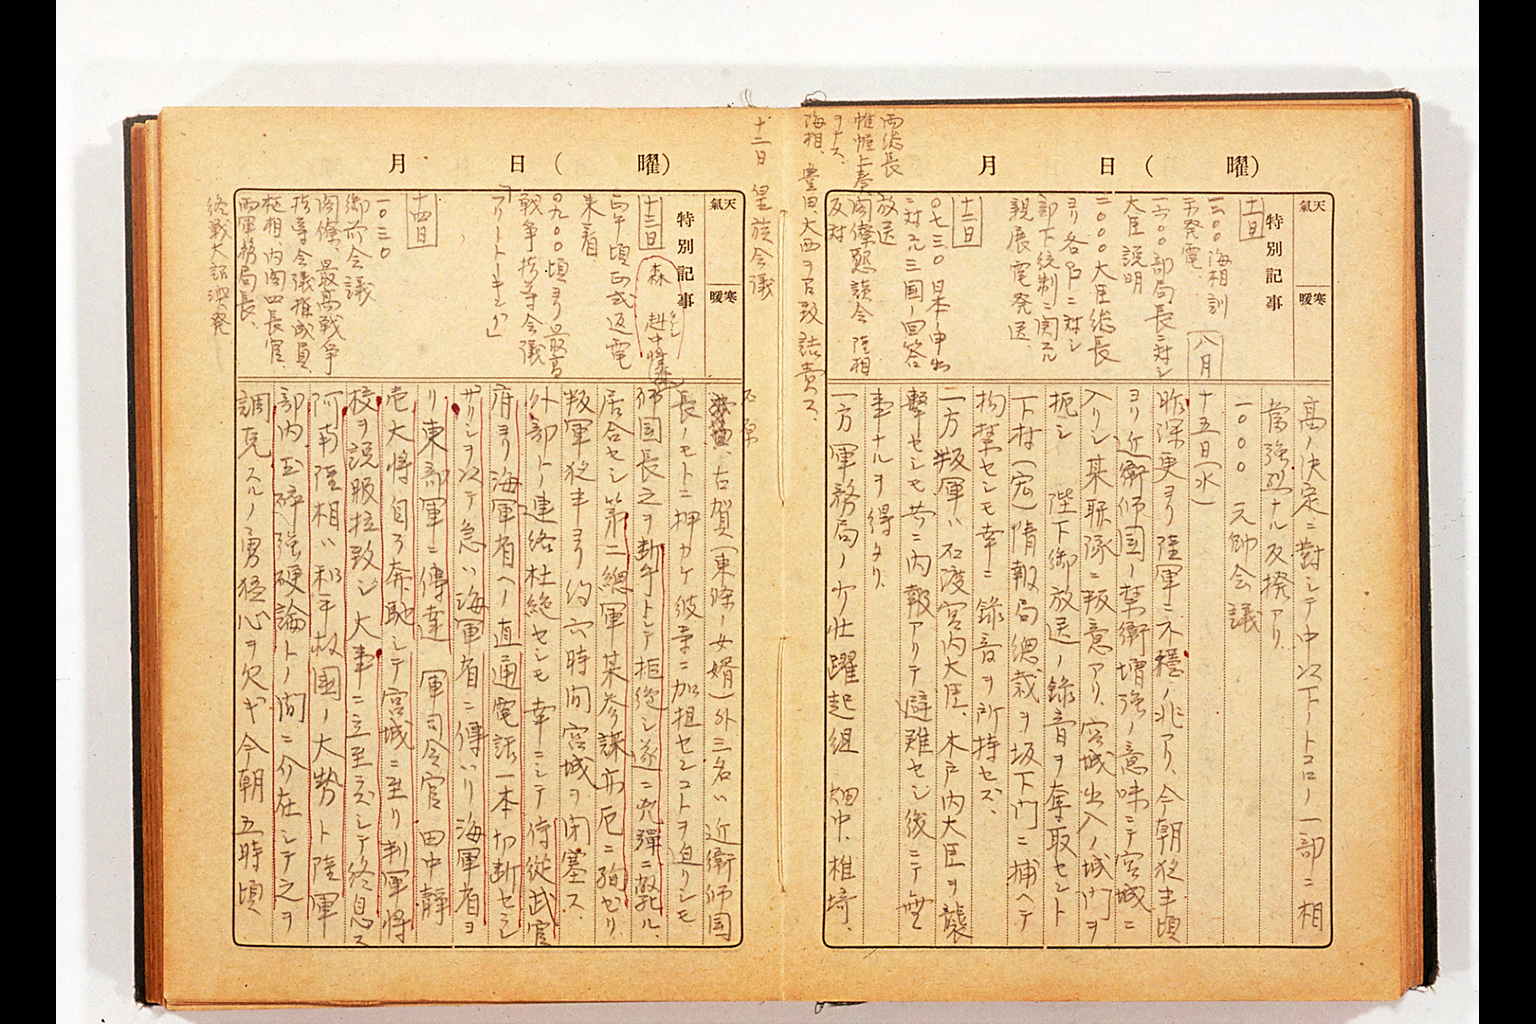 月 日(曜)
天氣
寒暖
特別記事
十一日
一三〇〇 海相訓
示発電、
一六〇〇部局長ニ対シ
大臣説明
二〇〇〇大臣総長
ヨリ各長ニ対シ
部下統制ニ関スル
親展電発送
十二日
〇七三〇日本申出
ニ対スル三国ノ回答
放送
両総長
帷幄上奏
ヲナス、
閣僚懇談会 陸相
反対
海相、豊田、大西ヲ召致詰責ス、
高ノ決定ニ對シテ中以下ノトコロノ一部ニ相
當強烈ナル反撥アリ
一〇〇〇 元帥会議
八月
十五日(水)
昨深更ヨリ陸軍ニ不穏ノ兆アリ、今朝夜半頃
ヨリ近衛師団ノ禁衛増強ノ意味ニテ宮城ニ
入リシ某聯隊ニ叛意アリ、宮城出入ノ城門ヲ
扼シ 陛下御放送ノ録音ヲ奪取セント
下村(宏)情報局總裁ヲ坂下門ニ捕ヘテ
拘禁セシモ幸ニ録音ヲ所持セズ、
一方叛軍ハ石渡宮内大臣、木戸内大臣ヲ襲
撃セシモ共ニ内報アリテ避難セシ後ニテ無
事ナルヲ得タリ、
一方軍務局ノ少壮躍起組 畑中、椎崎、
月 日(曜)
天氣
寒暖
特別記事
十二日 皇族会議
十三日
正午頃正式返電
来着
〇九〇〇頃ヨリ最高
戦争指導会議
ヲフリートーキング
十四日
一〇三〇
御前会議
閣僚、最高戦争
指導会議構成員、
枢相、内閣四長官
両軍務局長、
終戦大詔渙発
石原
古賀(東條ノ女婿)外三名ハ近衛師団
長ノモトニ押カケ彼等ニ加担センコトヲ迫リシモ
森
赳中将
師団長之ヲ断乎トシテ拒絶シ遂ニ兇彈ニ斃ル、
居合セシ第二總軍某参謀亦厄ニ殉セリ
叛軍夜半ヨリ約六時間宮城ヲ閉塞ス、
外部ト連絡杜絶セシモ幸ニシテ侍從武官
府ヨリ海軍省ヘノ直通電話一本切断セシ
ザリシヲ以テ急ハ海軍省ニ傳ハリ海軍省ヨ
リ東部軍ニ傳達 軍司令官田中静
壱大將自ラ奔馳シテ宮城ニ至リ判軍將
校ヲ説服拉致シ大事ニ立至ラズシテ終息ス
阿南陸相ハ和平救國ノ大勢ト陸軍
部内玉碎強硬論トノ間ニ介在シテ之ヲ
調克スルノ勇猛心ヲ欠ギ今朝五時頃